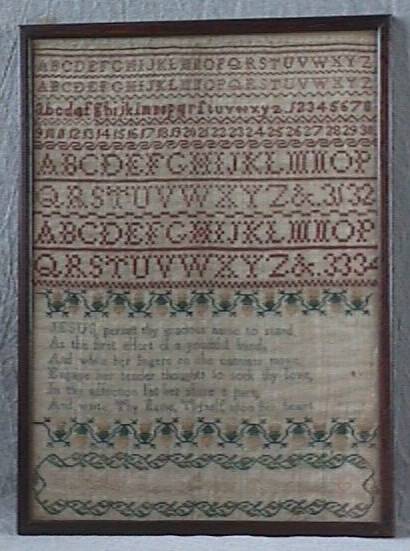 ABCDEFGHIJKLMNOPQRSTUVWXYZ
ABCDEFGHIJKLMNOPQRSTUVWXYZ
abcdefghijklmnopqrstuvwxyz.12345678
9 10 11 12 13 14 15 16 17 18 19 20 21 22 23 24 25 26 27 28 29 30
ABCDEFGHIJKLMNOP
QRSTUVWXYZ&.31 32
ABCDEFGHIJKLMNOP
QRSTUVWXYZ&.33 34
JESUS permit thy gracious name to stand
As the first effort of a youthful hand,
And while her fingers on the canvass move,
Engage her tender thoughts to seek thy love,
In thy affection let her share a part,
And write Thy Name, Thyself upon her heart